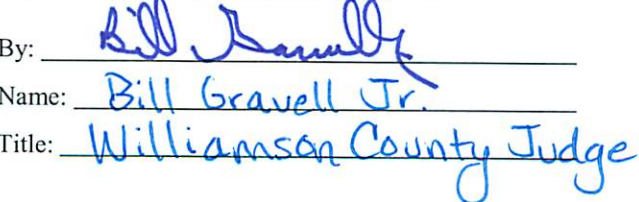 By: Bill Gravell Jr.
Name: Bill Gravell Jr.
Title: Williamson County Judge